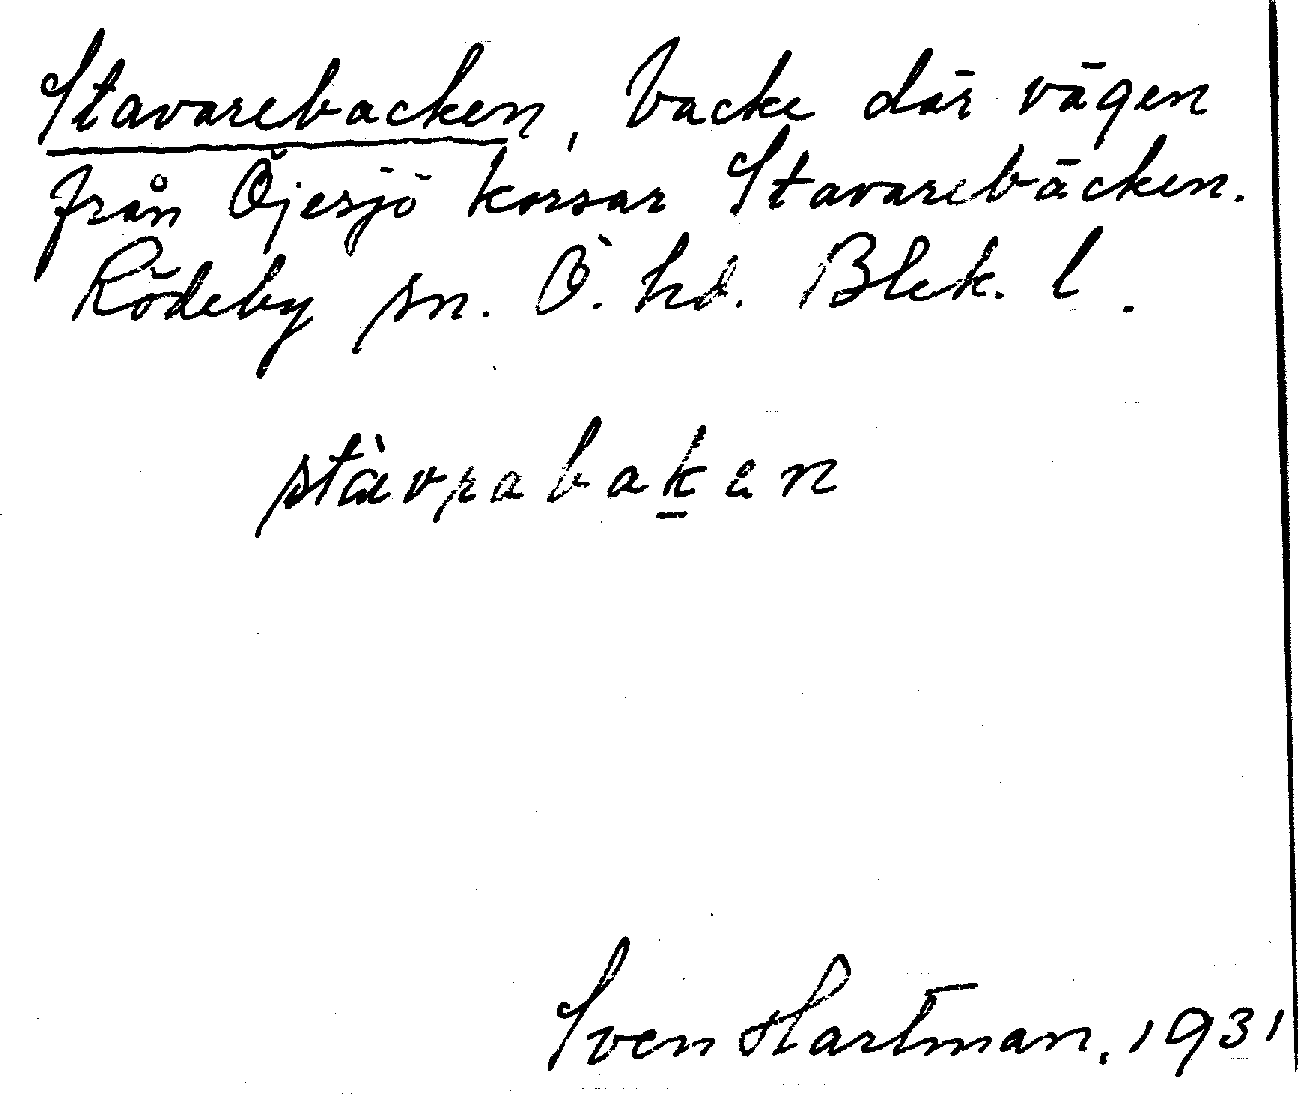 Stavarebacken, backe där vägen
från Öjesjö korsar Stavarebäcken.
Rödeby sn. Ö. hd. Blek. l.
stàvrabaken
Sven Hartman. 1931